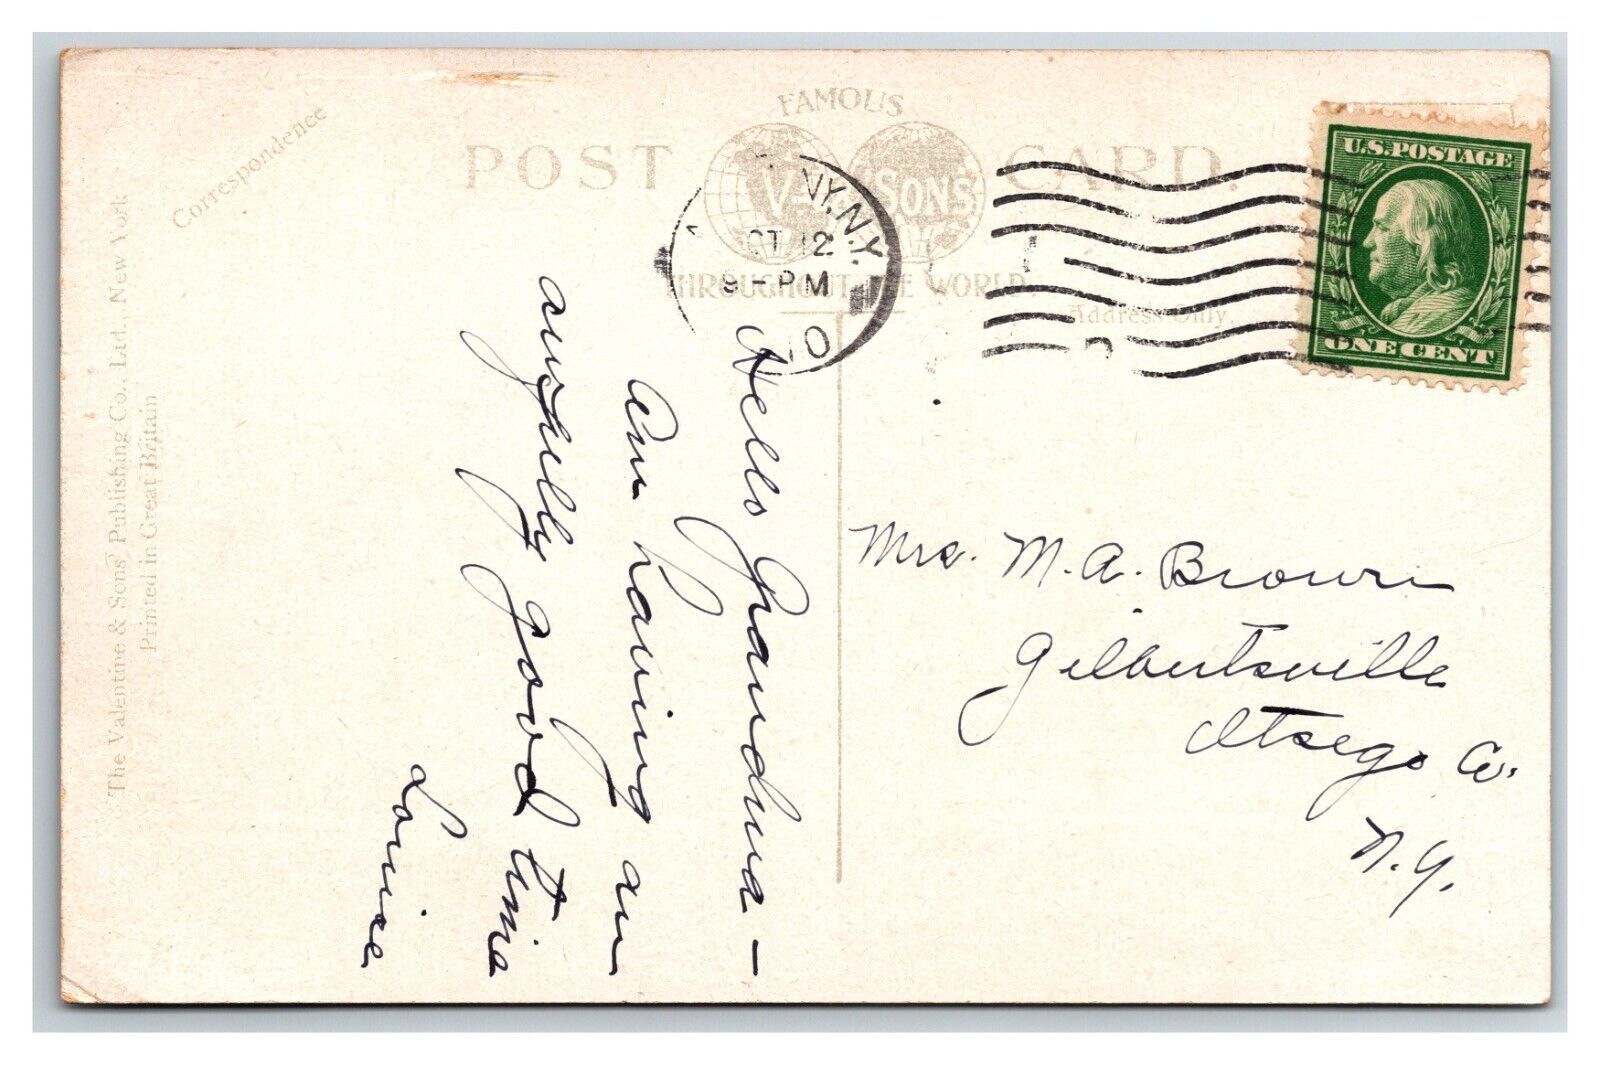 The Valentine & Sons' Publishing Co., Ltd., New York
Printed in Great Britain
Correspondence
FAMOUS
POST CARD.
V & SONS
THROUGHOUT THE WORLD.
Address Only.
Y, N.Y.
OCT 12
9-PM
10
U.S. POSTAGE
ONE CENT
Hello Grandma —
Am having an
awfully good time
Louise
Mrs. M. A. Brown
Gilbertsville
Otsego Co.
N.Y.